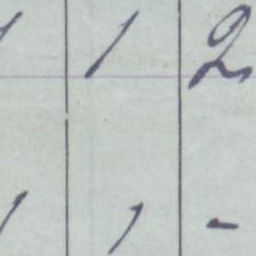 1 1 2
1 1 -